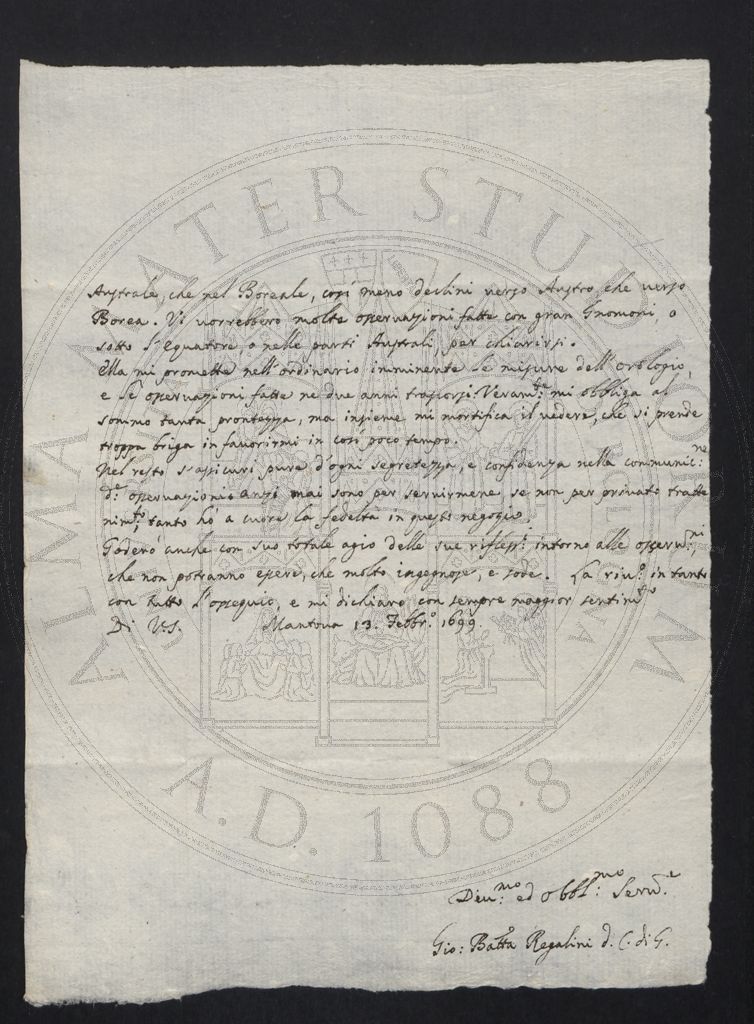 Australe, che nel Boreale, così meno declini verso Austro che verso
Borea. Vi vorrebbero molte osservazioni fatte con gran Gnomoni, o
sotto l'Equatore, o nelle parti Australi, per chiarirsi.
Ella mi promette nell'ordinario imminente le misure dell'orologio,
e le osservazioni fatte ne due anni trascorsi. Veram:te mi obbliga al
sommo tanta prontezza, ma insieme mi mortifica il vedere, che si prende
troppa briga in favorirmi in così poco tempo.
Nel resto s'assicuri pure d'ogni segretezza, e confidenza nella communic:ne
d:e osservazioni: anzi mai sono per servirmene se non per privato tratte
nim:to, tanto hò a cuore la fedeltà in questo negozio.
Goderò anche con suo totale agio delle sue rifless:i intorno alle osserv:ni,
che non potranno essere, che molto ingegnose, e sode. La riv:o in tanto
con tutto l'ossequio, e mi dichiaro con sempre maggior sentim:to
Di V.S. Mantova 13. Febbr:o 1699.
Diu:mo ed obbl:mo Serv:e
Gio: Batta Regalini d. C. di G.
ALMA MATER STUDIORUM
A.D. 1088